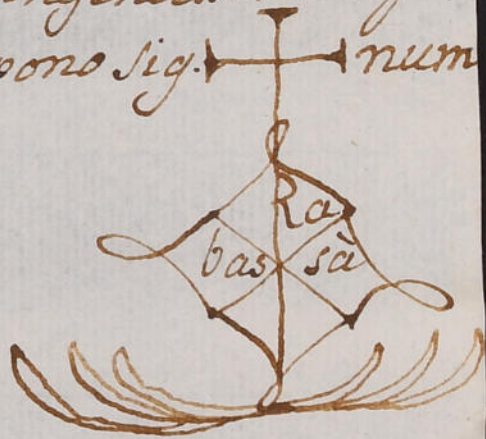 pono sig. num
Ra
bas sà